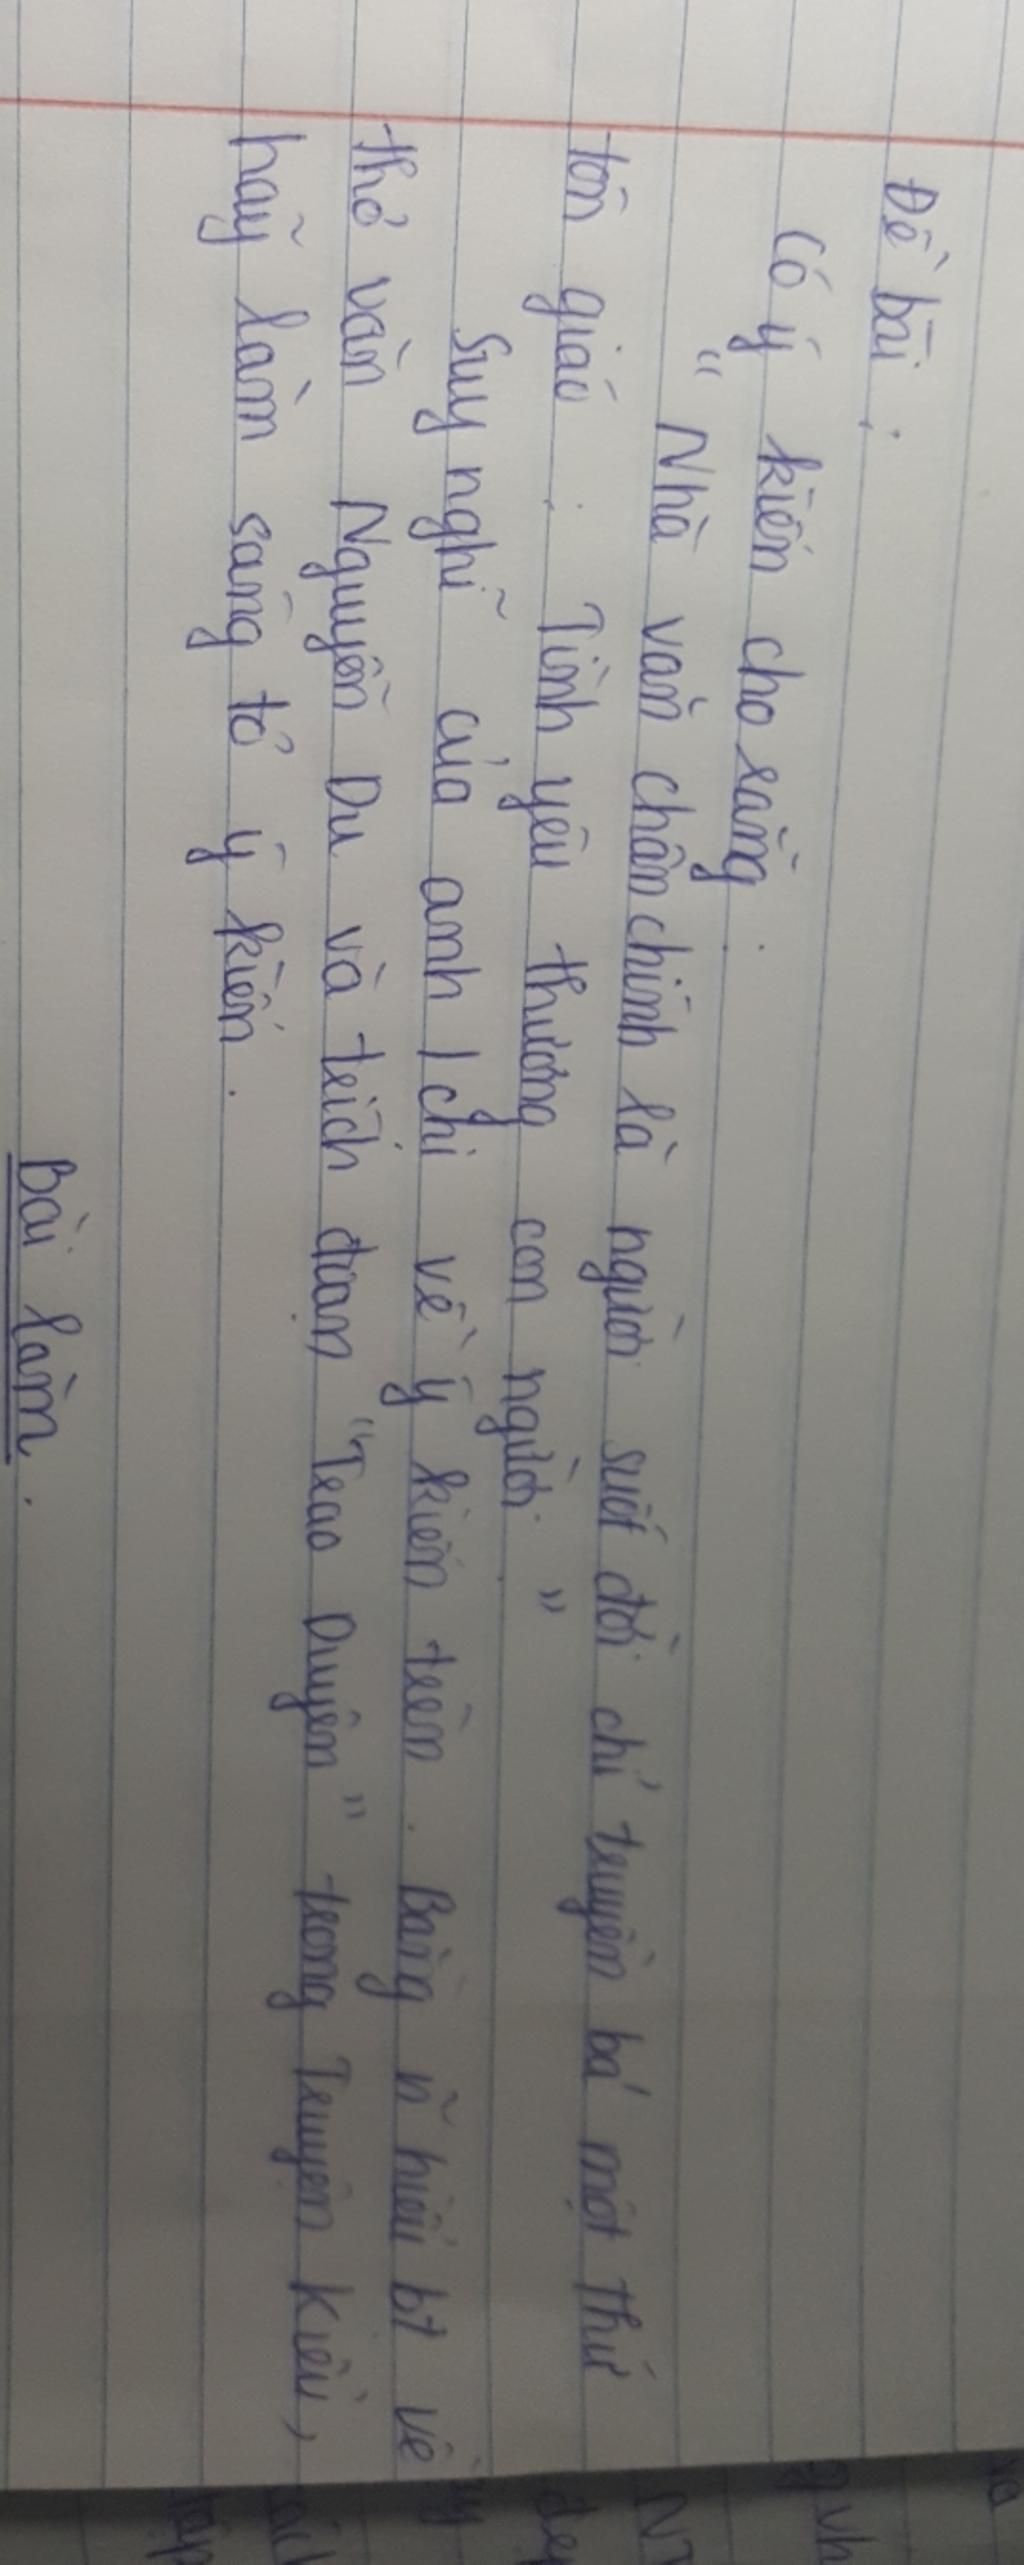 Đề bài:
Có ý kiến cho rằng:
" Nhà văn chân chính là người suốt đời chỉ truyền bá một thứ
tôn giáo : Tình yêu thương con người. "
Suy nghĩ của anh / chị về ý kiến trên. Bằng n~ hiểu bt về
thơ văn Nguyễn Du và trích đoạn "Trao Duyên" trong Truyện Kiều,
hãy làm sáng tỏ ý kiến.
Bài làm.